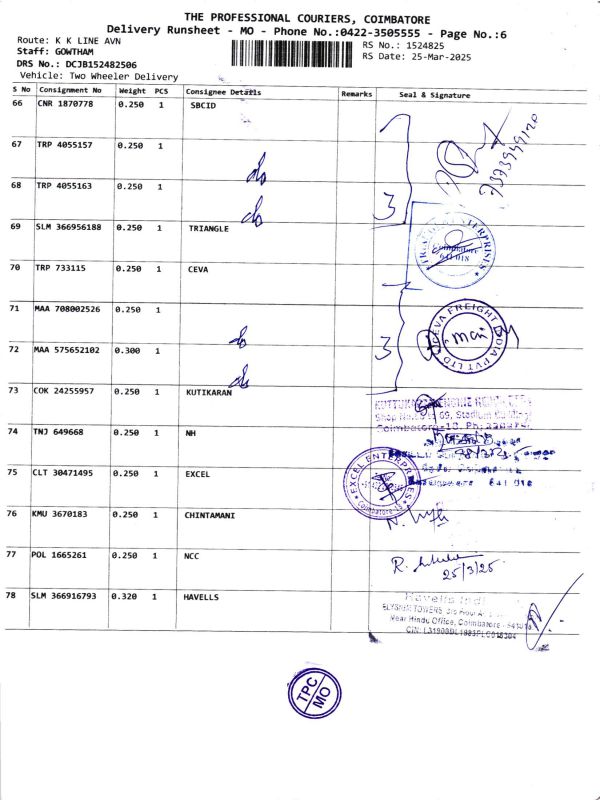 THE PROFESSIONAL COURIERS, COIMBATORE
Delivery Runsheet - MO - Phone No.:0422-3505555 - Page No.:6
Route: K K LINE AVN
RS No.: 1524825
Staff: GOWTHAM
RS Date: 25-Mar-2025
DRS No.: DCJB152482506
Vehicle: Two Wheeler Delivery
S No Consignment No Weight PCS Consignee Details Remarks Seal & Signature
66 CNR 1870778 0.250 1 SBCID
67 TRP 4055157 0.250 1 do
68 TRP 4055163 0.250 1 do
3
69 SLM 366956188 0.250 1 TRIANGLE
TRIANGLE ENTERPRISES
Coimbatore
641 018
70 TRP 733115 0.250 1 CEVA
71 MAA 708002526 0.250 1 do
CEVA FREIGHT INDIA PVT LTD
72 MAA 575652102 0.300 1 do
3
73 COK 24255957 0.250 1 KUTIKARAN
Shop No. 69, Stadium Building
74 TNJ 649668 0.250 1 NH
75 CLT 30471495 0.250 1 EXCEL
EXCEL ENTERPRISES
Coimbatore-18
641 018
76 KMU 3670183 0.250 1 CHINTAMANI
77 POL 1665261 0.250 1 NCC
25/3/25
78 SLM 366916793 0.320 1 HAVELLS
Havells Indi
ELYSIUM TOWERS 3rd Floor
Near Hindu Office, Coimbatore - 641018
TPC
MO